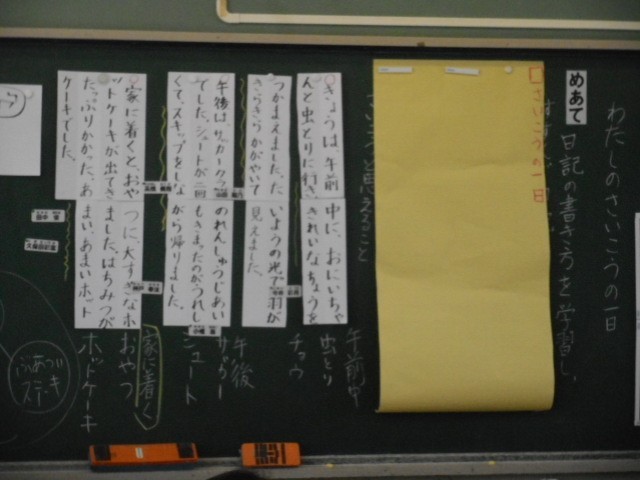 わたしのさいこうの一日
めあて
日記の書き方を学習し、
さいこうの一日
と思えること
きょうは、午前中に、おにいちゃ
んと虫とりに行き、きれいなちょうを
つかまえました。たいようの光で羽が
きらきらかがやいて見えました。
午後は、サッカークラブのれんしゅうじあい
でした。シュートが二回もきまったのがうれし
くて、スキップをしながら帰りました。
家に着くと、おやつに大すきなホ
ットケーキが出てきました。はちみつが
たっぷりかかった、あまい、あまいホット
ケーキでした。
午前中
虫とり
チョウ
午後
サッカー
シュート
家に着く
おやつ
ホットケーキ
ステーキ